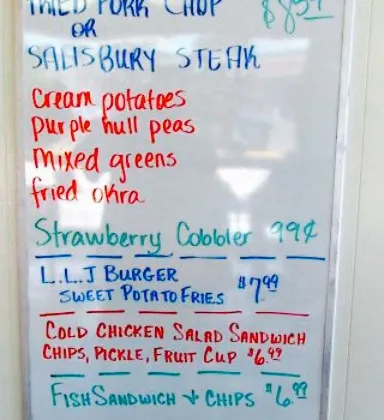 FRIED PORK CHOP
OR
SALISBURY STEAK
Cream potatoes
purple hull peas
mixed greens
fried okra
Strawberry Cobbler 99¢
L.L.J BURGER $7.99
SWEET POTATO FRIES
COLD CHICKEN SALAD SANDWICH
CHIPS, PICKLE, FRUIT CUP $6.49
FISH SANDWICH + CHIPS $6.99